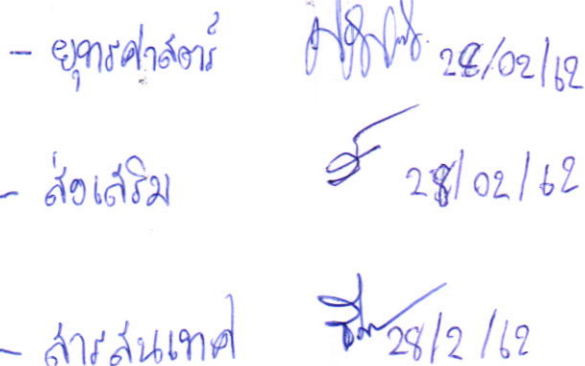 - ยุทธศาสตร์ 28/02/62
- ส่งเสริม 28/02/62
- สารสนเทศ 28/2/62